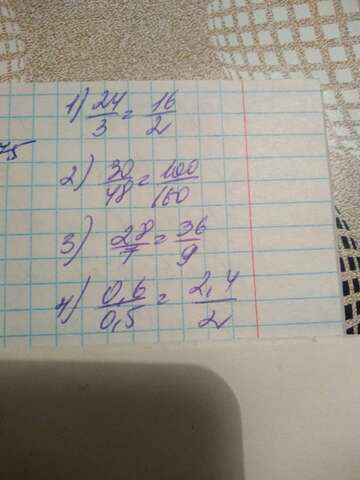 75
1) 24/3 = 16/2
2) 30/48 = 100/160
3) 28/7 = 36/9
4) 0,6/0,5 = 2,4/2